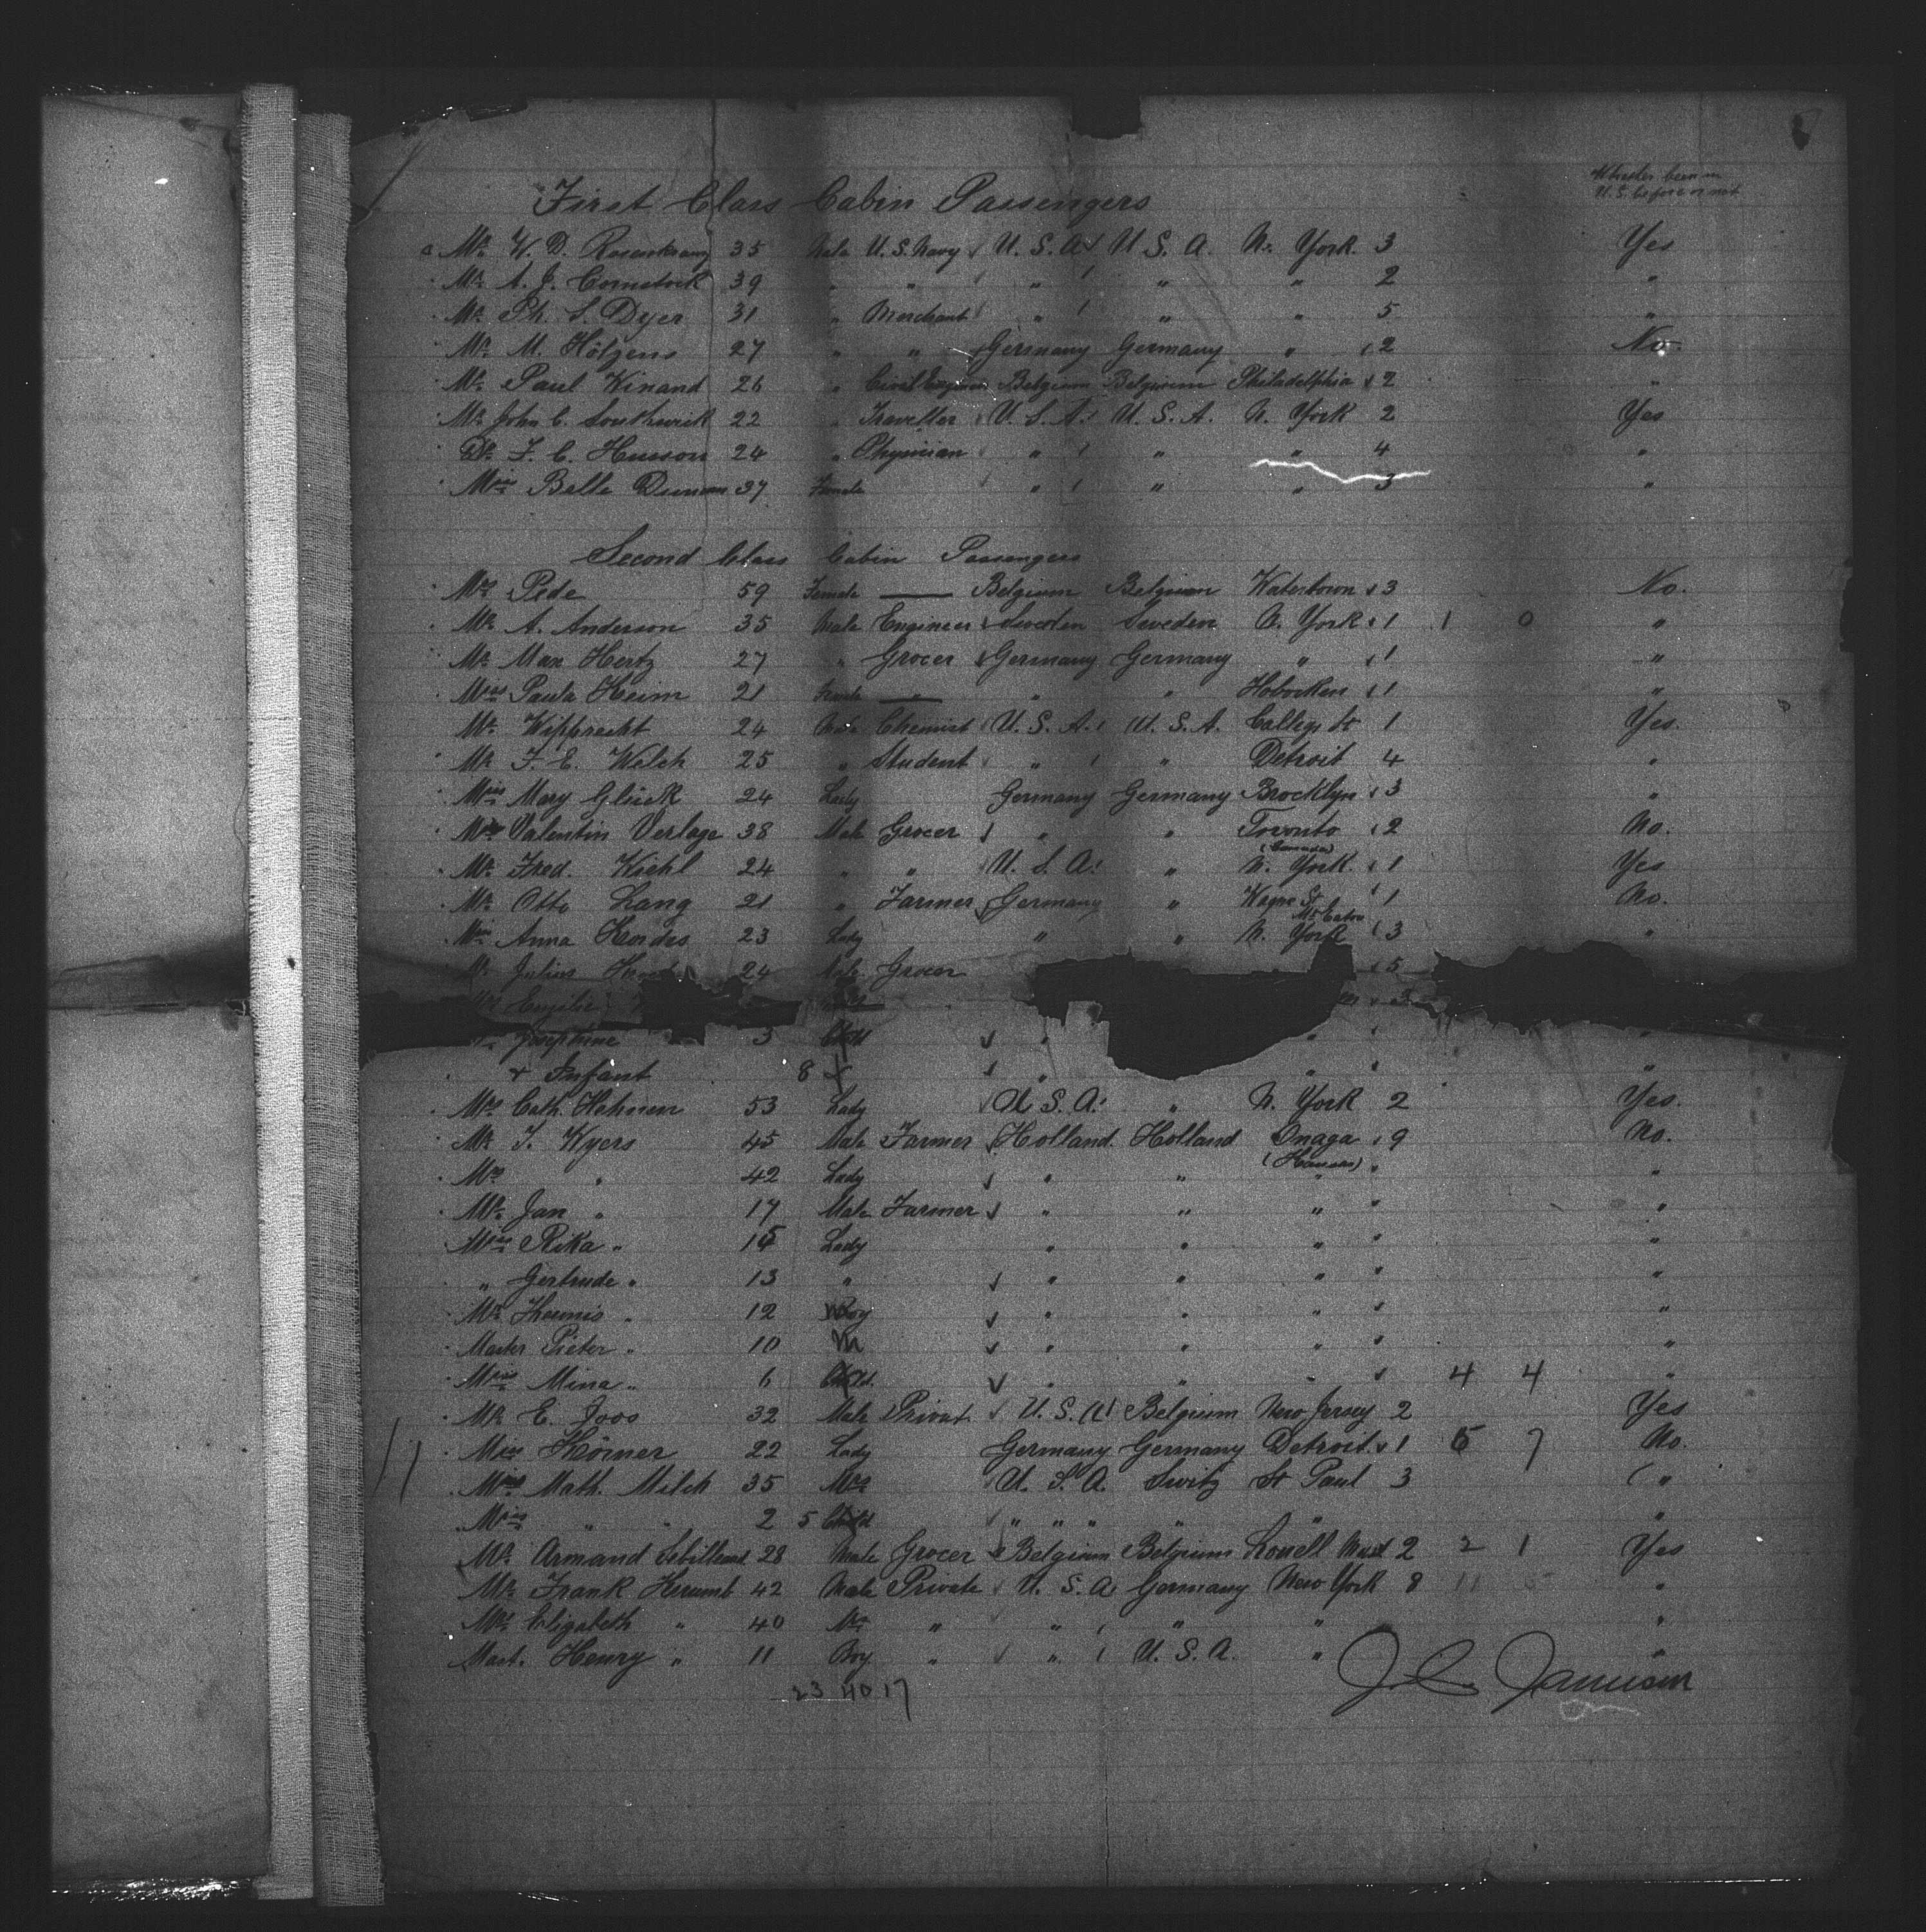 Whether been in
U.S. before or not
First Class Cabin Passengers
Mr. W. D. Rosenkranz 35 Male U.S. Navy U.S.A. U.S.A. N. York. 3 Yes
Mr. A. J. Comstock 39 " " " " " 2 "
Mr. Ph. S. Dyer 31 " Merchant " " " 5 "
Mr. M. Hölzens 27 " " Germany Germany " 2 No.
Mr. Paul Winand 26 " Civil Belgium Belgium Philadelphia 2 "
Mr. John C. Southwick 22 " Traveller U.S.A. U.S.A. N. York 2 Yes
Dr. F. C. Husson 24 " Physician " " " 4 "
Miss Belle 37 Female " " " 3 "
Second Class Cabin Passengers
Mrs. Pede 59 Female — Belgium Belgium Watertown 3 No.
Mr. A. Anderson 35 Male Engineer Sweden Sweden N. York 1 1 0 "
Mr. Max Hertz 27 " Grocer Germany Germany " 1 "
Miss Paula Heim 21 Female — " " Hoboken 1 "
Mr. Wipprecht 24 Male Chemist U.S.A. U.S.A. College St 1 Yes.
Mr. F. E. Welch 25 " Student " " Detroit 4 "
Miss Mary Glück 24 Lady Germany Germany Brooklyn 3 "
Valentin Verlage 38 Male Grocer " " Toronto 2 No.
(Canada)
Mr. Fred. Kiehl 24 " " U.S.A. " N. York. 1 Yes
Mr. Otto Lang 21 " Farmer Germany " Wayne St 1 No.
Miss Anna Hordes 23 Lady " " N. York 3 "
Mr. Julius 24 Male Grocer 5
Emilie
Josephine 3 Child " " "
+ Infant 8 " " "
Mrs. Cath. Hahnen 53 Lady U.S.A. " N. York 2 Yes.
Mr. T. Wyers 45 Male Farmer Holland. Holland Onaga 9 No.
(Kansas)
Mrs. " 42 Lady " " " "
Mr. Jan " 17 Male Farmer " " " "
Miss Rika " 15 Lady " " " "
" Gertrude " 13 " " " " "
Mr. Theunis " 12 Boy " " " "
Master Pieter " 10 M " " " "
Miss Mina " 6 Child " " " 4 4 "
Mr. E. Joos 32 Male Privat. U.S.A. Belgium New Jersey 2 Yes
Miss Körner 22 Lady Germany Germany Detroit 1 6 7 No.
Math. Milch 35 Mrs U.S.A. Switz St Paul 3 "
Miss " " 2 5 Child " " " " "
Mr. Armand 28 Male Grocer Belgium Belgium Lowell Mass 2 2 1 Yes
Mr. Frank Krumb 42 Male Private U.S.A. Germany New York 8 11 "
Mrs. Elizabeth " 40 Mrs " " " " "
Mast. Henry " 11 Boy " " U.S.A. " "
23 40 17
Jamison